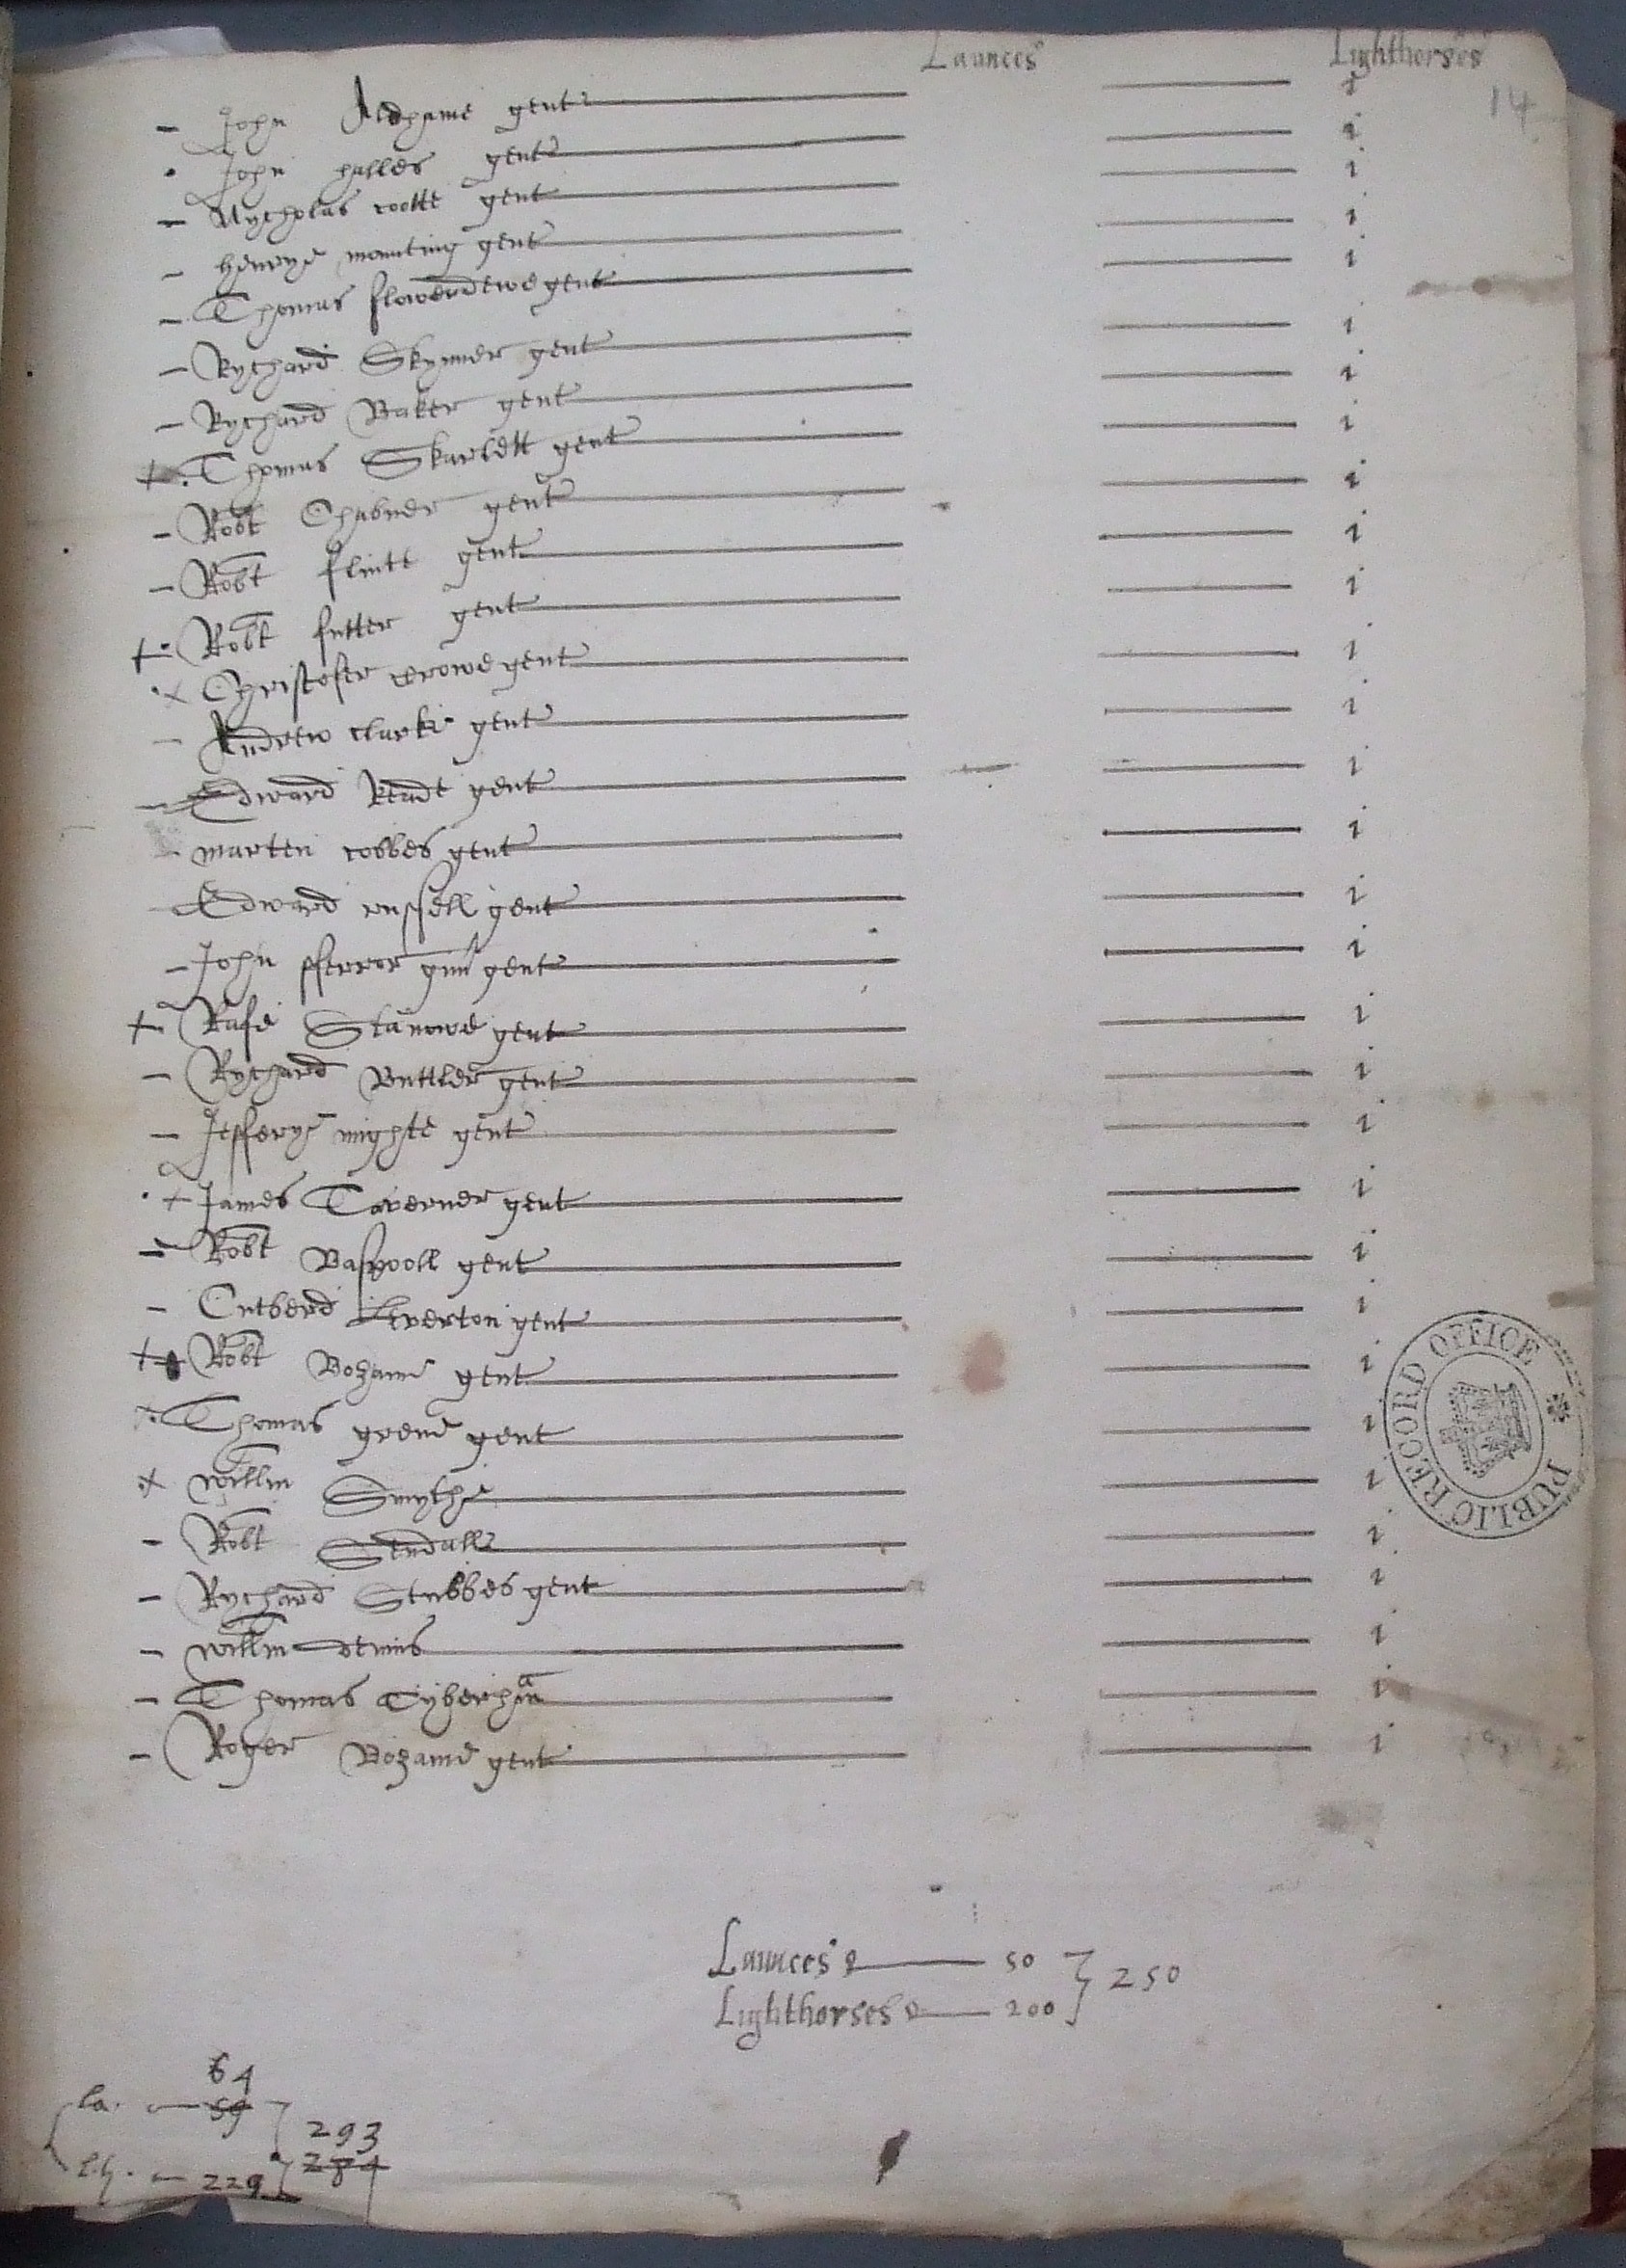 Launces Lighthorses
14
John Aldhame gent i
John halles gent i
Nycholas cootte gent i
Henrye mounting gent i
Thomas flowerdewe gent i
Rychard Skynner gent i
Rychard Baker gent i
Thomas Skarlett gent i
Robt Chabner gent i
Robt flinte gent i
Robt futter gent i
Christofer crowe gent i
Andrew clarke gent i
Edward keade gent i
marten cobbes gent i
Edward russell gent i
John fferror gent i
Rafe Stanowe gent i
Rychard Buttler gent i
Jefferye mighte gent i
James Taverner gent i
Robt Baspooll gent i
Cutberd Leverton gent i
Robt Bozame gent i
Thomas grene gent i
willm Smythe i
Robt Sendall i
Rychard Stubbes gent i
willm denis i
Thomas Tyberham i
Roger Bozame gent i
Launces 50 } 250
Lighthorses 200
64
la. 59 293
l.h. 229 284
PUBLIC RECORD OFFICE